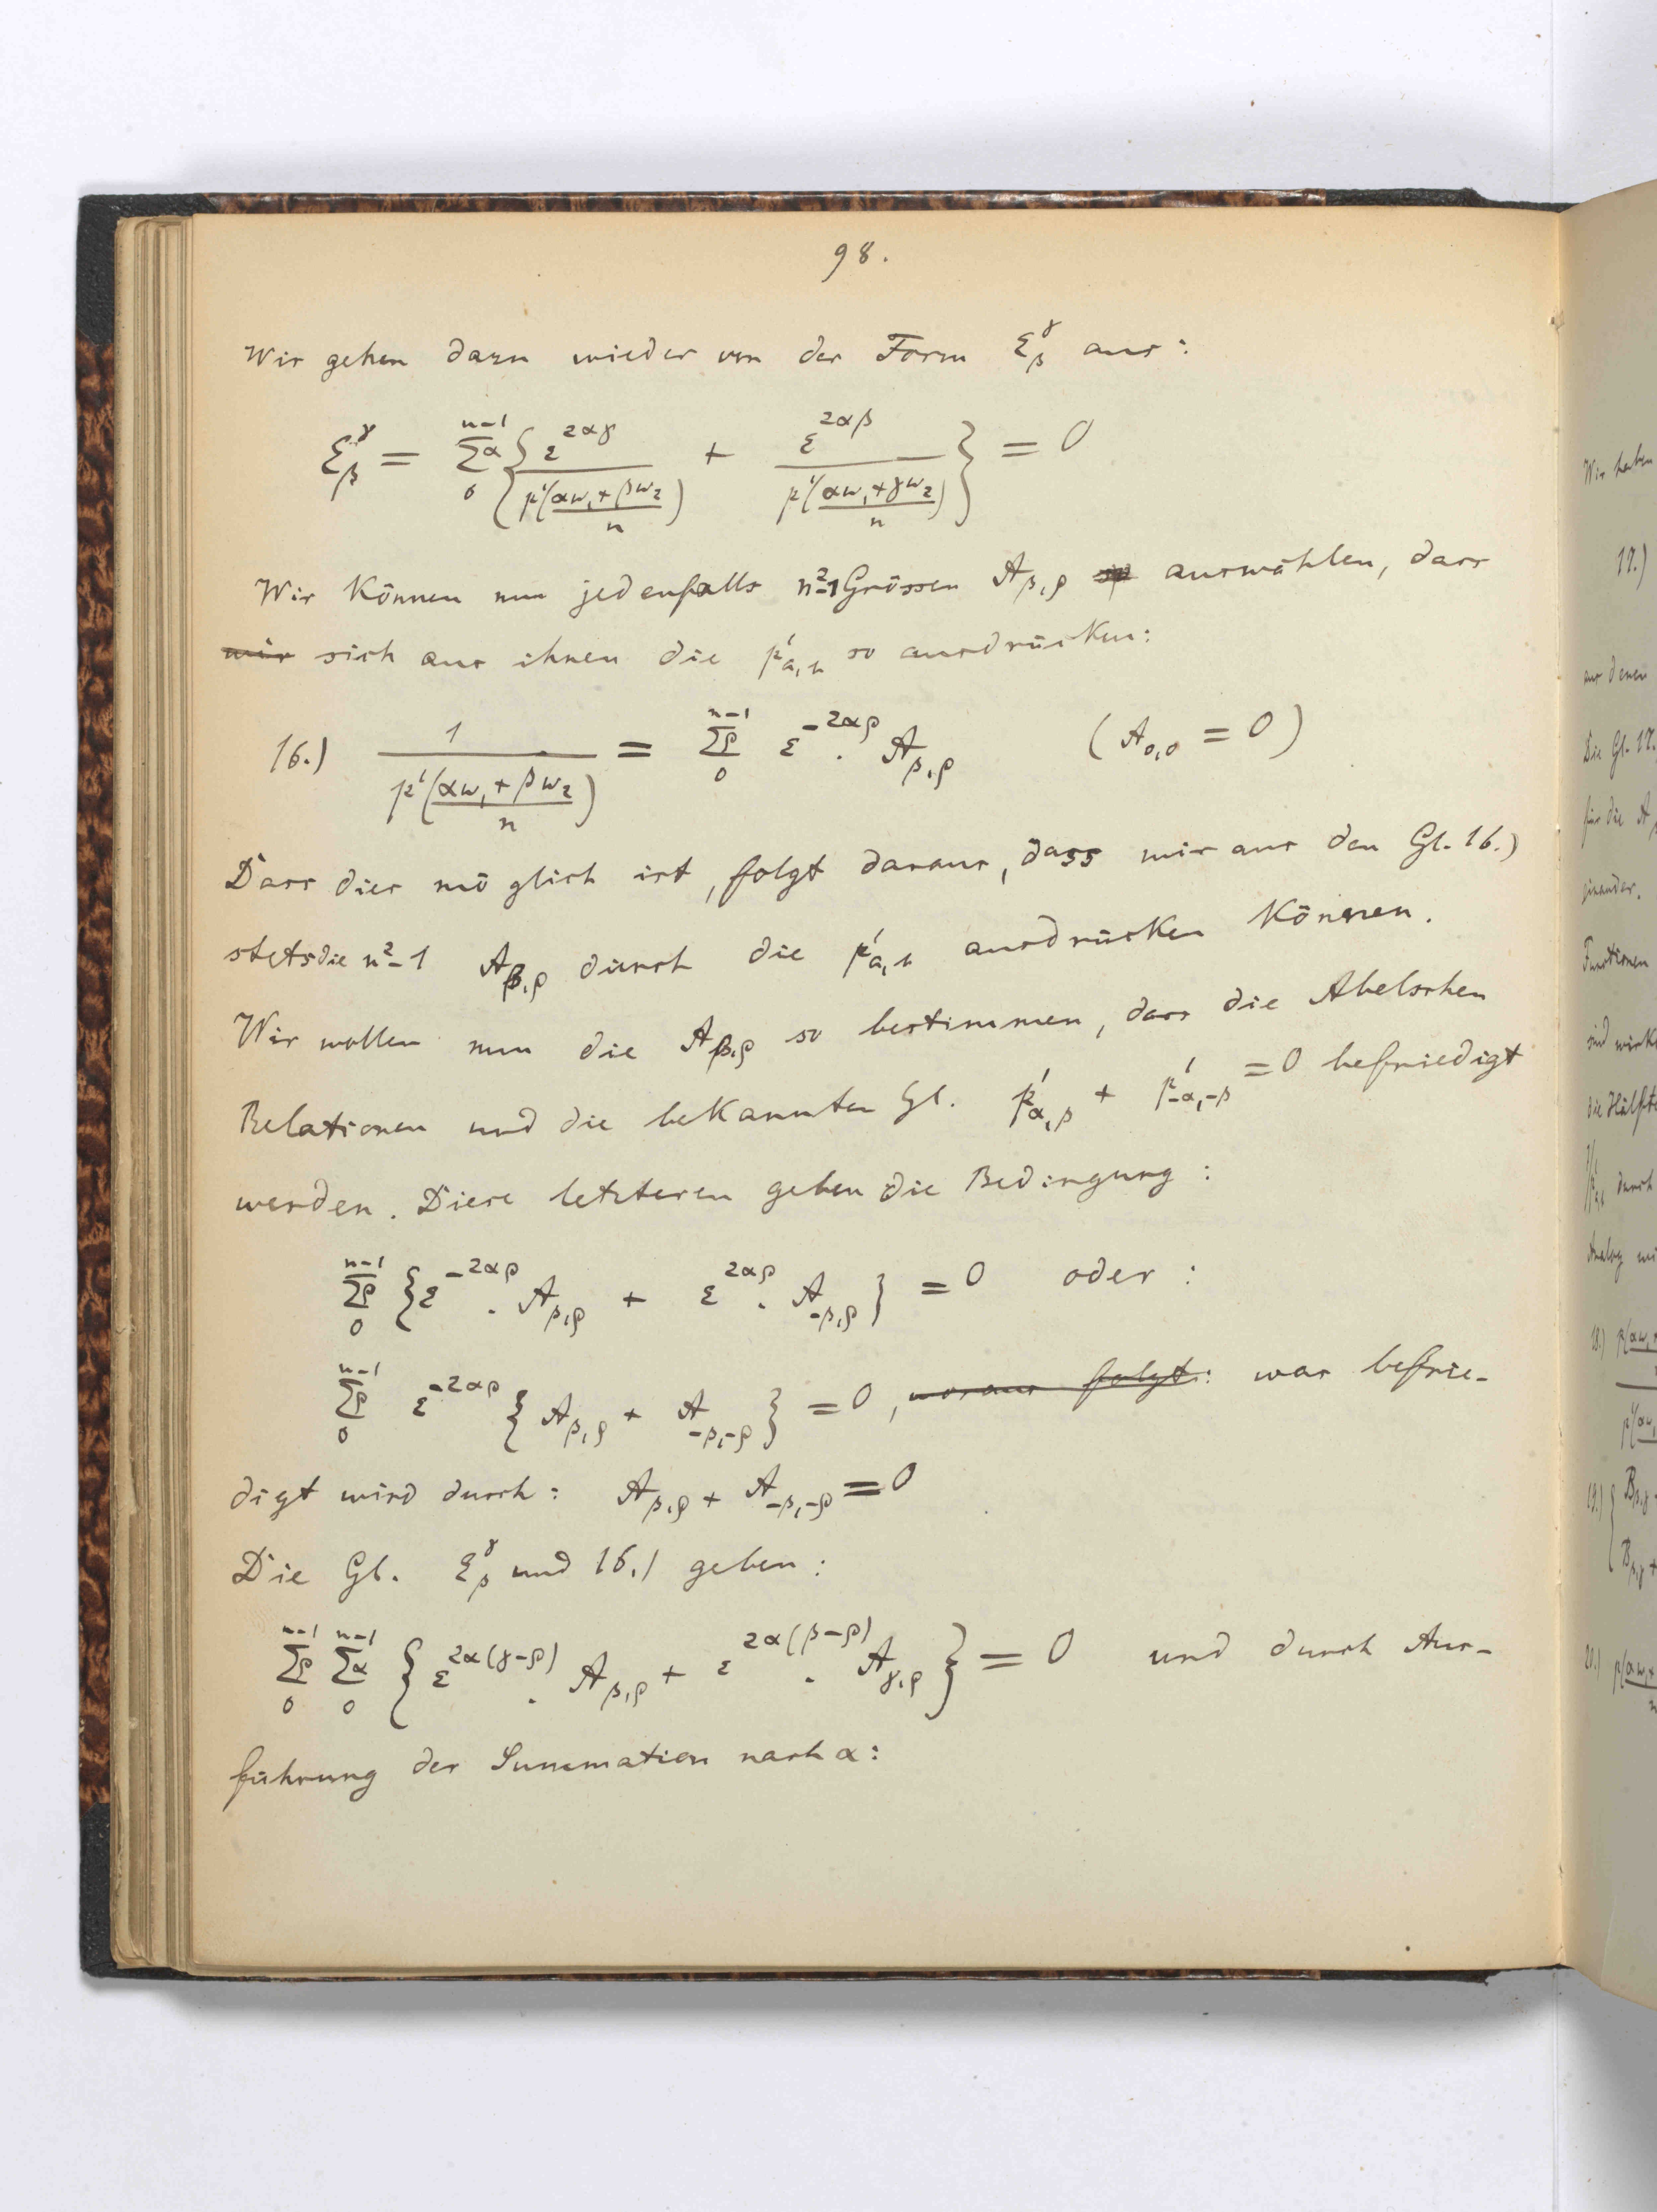 98.
Wir gehen dazu wieder von der Form Σ_β^γ aus:
Σ_β^γ = Σα_0^{n-1} { ε^{2αγ} / p'((αω₁+βω₂)/n) + ε^{2αβ} / p'((αω₁+γω₂)/n) } = 0
Wir können nun jedenfalls n²-1 Grössen A_{β,ρ} auswählen, dass
wir sich aus ihnen die p'_{a,b} so ausdrücken:
16.) 1 / p'((αω₁+βω₂)/n) = Σρ_0^{n-1} ε^{-2αρ} . A_{β,ρ} (A_{0,0} = 0)
Dass dies möglich ist, folgt daraus, dass wir aus den Gl. 16.)
stets die n²-1 A_{β,ρ} durch die p'_{a,b} ausdrücken können.
Wir wollen nun die A_{β,ρ} so bestimmen, dass die Abelschen
Relationen und die bekannten Gl. p'_{α,β} + p'_{-α,-β} = 0 befriedigt
werden. Diese letzteren geben die Bedingung:
Σρ_0^{n-1} { ε^{-2αρ} . A_{β,ρ} + ε^{2αρ} . A_{-β,ρ} } = 0 oder:
Σρ_0^{n-1} ε^{-2αρ} { A_{β,ρ} + A_{-β,-ρ} } = 0, woraus folgt: was befrie-
digt wird durch: A_{β,ρ} + A_{-β,-ρ} = 0
Die Gl. Σ_β^γ und 16.) geben:
Σρ_0^{n-1} Σα_0^{n-1} { ε^{2α(γ-ρ)} . A_{β,ρ} + ε^{2α(β-ρ)} . A_{γ,ρ} } = 0 und durch Aus-
führung der Summation nach α:
Wir haben
17.)
aus denen
Die Gl. 17.
für die A
einander.
Functionen
sind
die Hälfte
durch
Analog
18.)
19.)
20.)